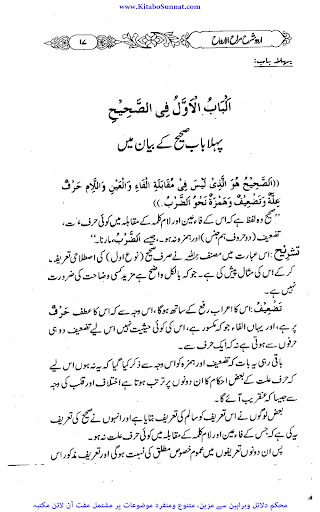 www.KitaboSunnat.com
اردو شرح مراح الارواح
۱۷
پہلا باب:
اَلْبَابُ الْاَوَّلُ فِی الصَّحِیْحِ
پہلا باب صحیح کے بیان میں
((اَلصَّحِیْحُ ھُوَ الَّذِیْ لَیْسَ فِیْ مُقَابَلَةِ الْفَاءِ وَالْعَیْنِ وَاللَّامِ حَرْفُ
عِلَّةٍ وَتَضْعِیْفٌ وَھَمْزَةٌ نَحْوُ الضَّرْبُ.))
”صحیح وہ لفظ ہے کہ اس کے فاء، عین اور لام کلمہ کے مقابلہ میں کوئی حرفِ علت،
تضعیف (دو حروف ہم جنس) اور ہمزہ نہ ہو۔ جیسے اَلضَّرْبُ، مارنا۔“
تشریح: اس عبارت میں مصنف رحمہ اللہ نے صرف صحیح (نوع اول) کی اصطلاحی تعریف
کر کے اس کی مثال پیش کی ہے۔ جو کہ بالکل واضح ہے مزید کسی وضاحت کی ضرورت
نہیں ہے۔
تَضْعِیْفٌ: اس کا اعراب رفع کے ساتھ ہوگا، اس وجہ سے کہ اس کا عطف حَرْفُ
پر ہے، اور یہاں الفاء جو کہ مکسور ہے، اس کی کوئی حیثیت نہیں اس لیے تضعیف دو ہی
حرفوں سے ہوتی ہے نہ کہ ایک حرف سے۔
باقی رہی یہ بات کہ تضعیف اور ہمزہ کو اس وجہ سے ذکر کیا گیا کہ یہ نہ ہوں اس لیے
کہ حرف علت کے بعض احکام کا ان دونوں پر ترتب ہوتا ہے اختلاف اور قلب کی وجہ
سے جیسا کہ عنقریب آئے گا۔
بعض لوگوں نے اس تعریف کو سالم کی تعریف بتایا ہے اور انہوں نے صحیح کی تعریف
یہ کی ہے کہ جس کے فاء، عین اور لام کلمہ کے مقابلہ میں کوئی حرف علت نہ ہو۔
پس ان دونوں تعریفوں میں عموم خصوص مطلق کی نسبت ہوگی اور تعریف مذکور اس
محکم دلائل و براہین سے مزین، متنوع و منفرد موضوعات پر مشتمل مفت آن لائن مکتبہ